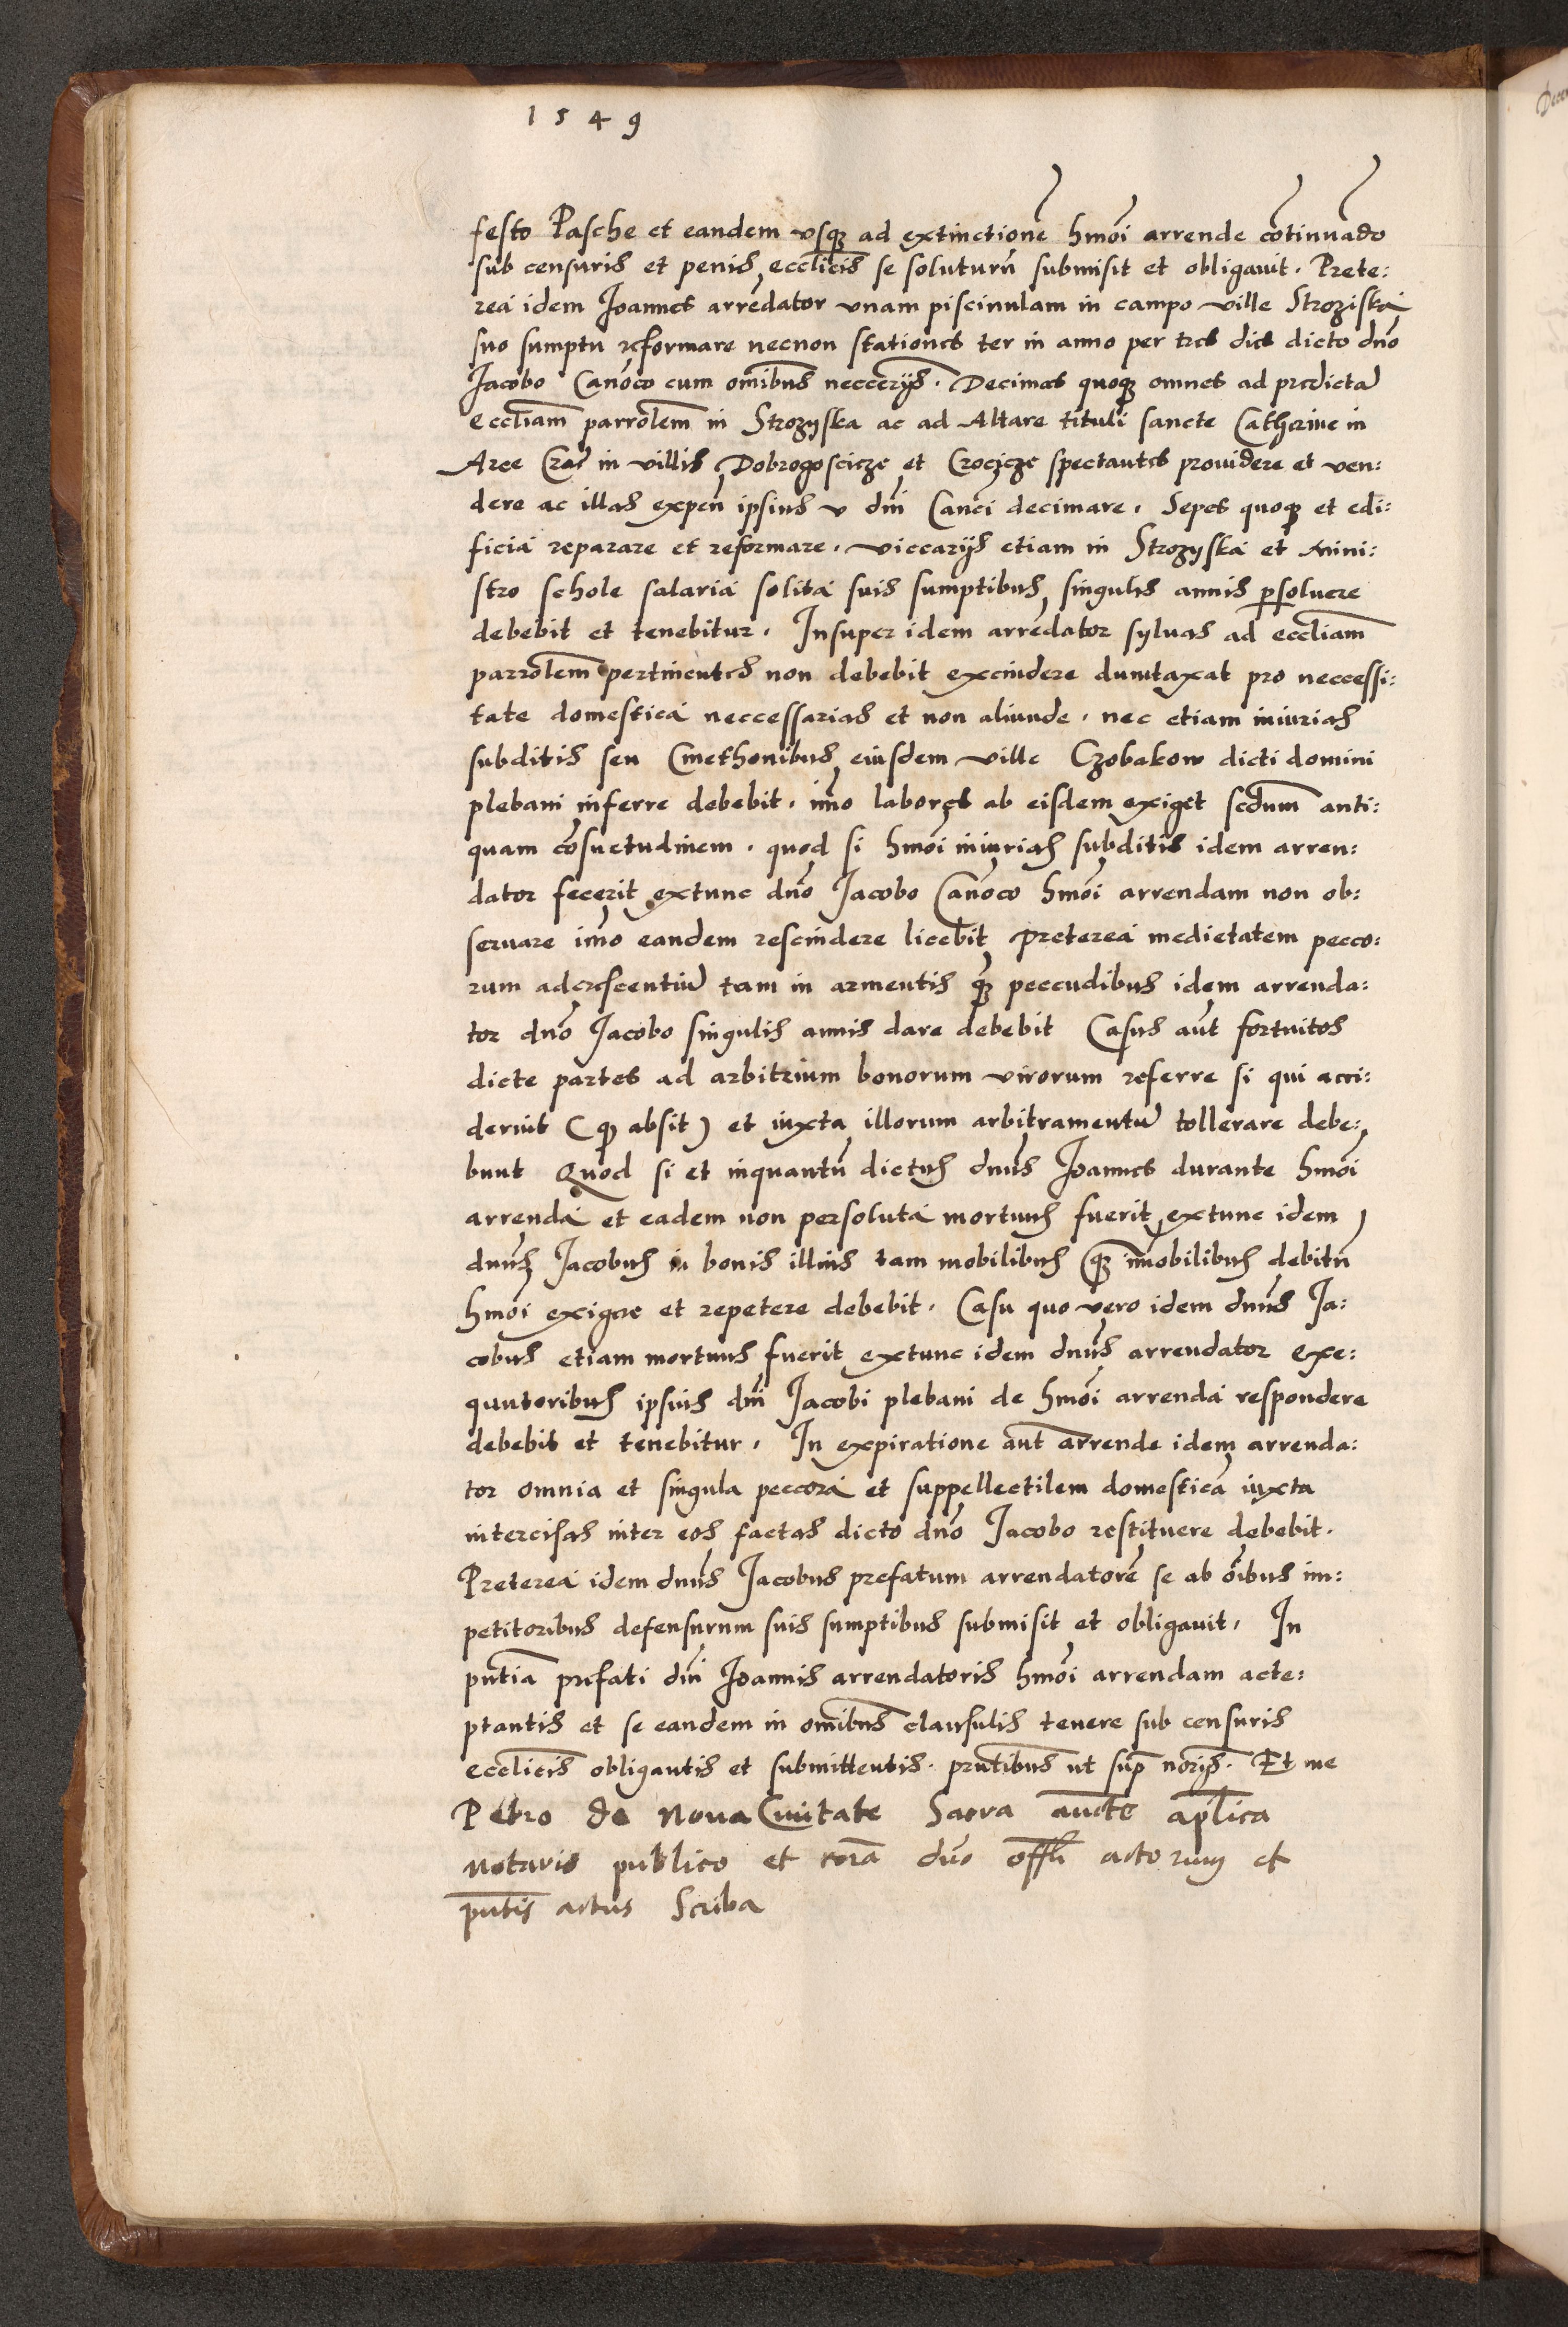 1549
festo Pasche et eandem vsq3 ad extinctionē hmōi arrende cōtinuādo
sub censuris et penis ecclīcis se soluturū submisit et obligauit. Prete:
rea idem Joannes arrēdator vnam piscinulam in campo ville Stroziska
suo sumptu reformare necnon stationes ter in anno per tres dies dicto dnō
Jacobo Canōco cum omībus neccērijs. Decimas quoq3 omnes ad predictā
eccliam parrolem in Strozyska ac ad Altare tituli sancte Catherine in
Arce Crac̄ in villis Dobrogoscicze et Croczicze spectantes prouidere et ven:
dere ac illas expen̄ ipsius v dnī Canci decimare. Sepes quoq3 et edi:
ficia reparare et reformare. viccarijs etiam in Strozyska et Mini:
stro schole salaria solita suis sumptibus singulis annis psoluere
debebit et tenebitur. Insuper idem arrēdator syluas ad eccliam
parrolem pertinentes non debebit excindere dumtaxat pro neccessi:
tate domestica neccessarias et non aliunde. nec etiam iniurias
subditis seu Cmethonibus eiusdem ville Czobakow dicti domini
plebani inferre debebit. imo labores ab eisdem exiget scdum anti:
quam cōsuetudinem. quod si hmōi iniurias subditis idem arren:
dator fecerit extunc dnō Jacobo Canōco hmōi arrendam non ob:
seruare imo eandem rescindere licebit preterea medietatem pecco:
rum adcrescentiū tam in armentis q3 peccudibus idem arrenda:
tor dnō Jacobo singulis annis dare debebit Casus aūt fortuitos
dicte partes ad arbitrium bonorum virorum referre si qui acci:
derint (q absit) et iuxta illorum arbitramentū tollerare debe:
bunt Quod si et inquantū dictus dnūs Joannes durante hmōi
arrenda et eadem non persoluta mortuus fuerit extunc idem
dnūs Jacobus in bonis illius tam mobilibus q3 imobilibus debitū
hmōi exigere et repetere debebit. Casu quo vero idem dnūs Ja:
cobus etiam mortuus fuerit extunc idem dnūs arrendator exe:
quutoribus ipsius dnī Jacobi plebani de hmōi arrenda respondere
debebit et tenebitur. In expiratione aūt arrende idem arrenda:
tor omnia et singula peccora et suppellectilem domesticā iuxta
intercisas inter eos factas dicto dnō Jacobo restituere debebit.
Preterea idem dnūs Jacobus prefatum arrendatorē se ab oībus im:
petitoribus defensurum suis sumptibus submisit et obligauit. In
pntia prefati dnī Joannis arrendatoris hmōi arrendam acce:
ptantis et se eandem in omībus clausulis tenere sub censuris
ecclīcis obligantis et submittentis. pntibus ut sup̄ norijs. Et me
Petro de Noua Ciuitate Sacra aucte aplica
notario publico et corā dno offli actorum et
pntis actus Scriba